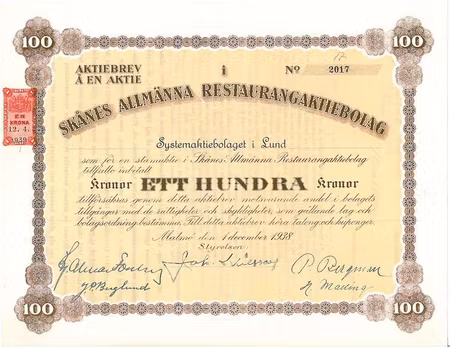 100
100
AKTIEBREV
Å EN AKTIE
i
Nº 2017
SKÅNES ALLMÄNNA RESTAURANGAKTIEBOLAG
EN
KRONA
12. 4.
939
Systemaktiebolaget i Lund
som för en stamaktie i Skånes Allmänna Restaurangaktiebolag
tillfullo inbetalt
Kronor ETT HUNDRA Kronor
tillförsäkras genom detta aktiebrev motsvarande andel i bolagets
tillgångar med de rättigheter och skyldigheter, som gällande lag och
bolagsordning bestämma. Till detta aktiebrev höra talong och kuponger.
Malmö den 1 december 1938
Styrelsen:
P. Bergman
100
100